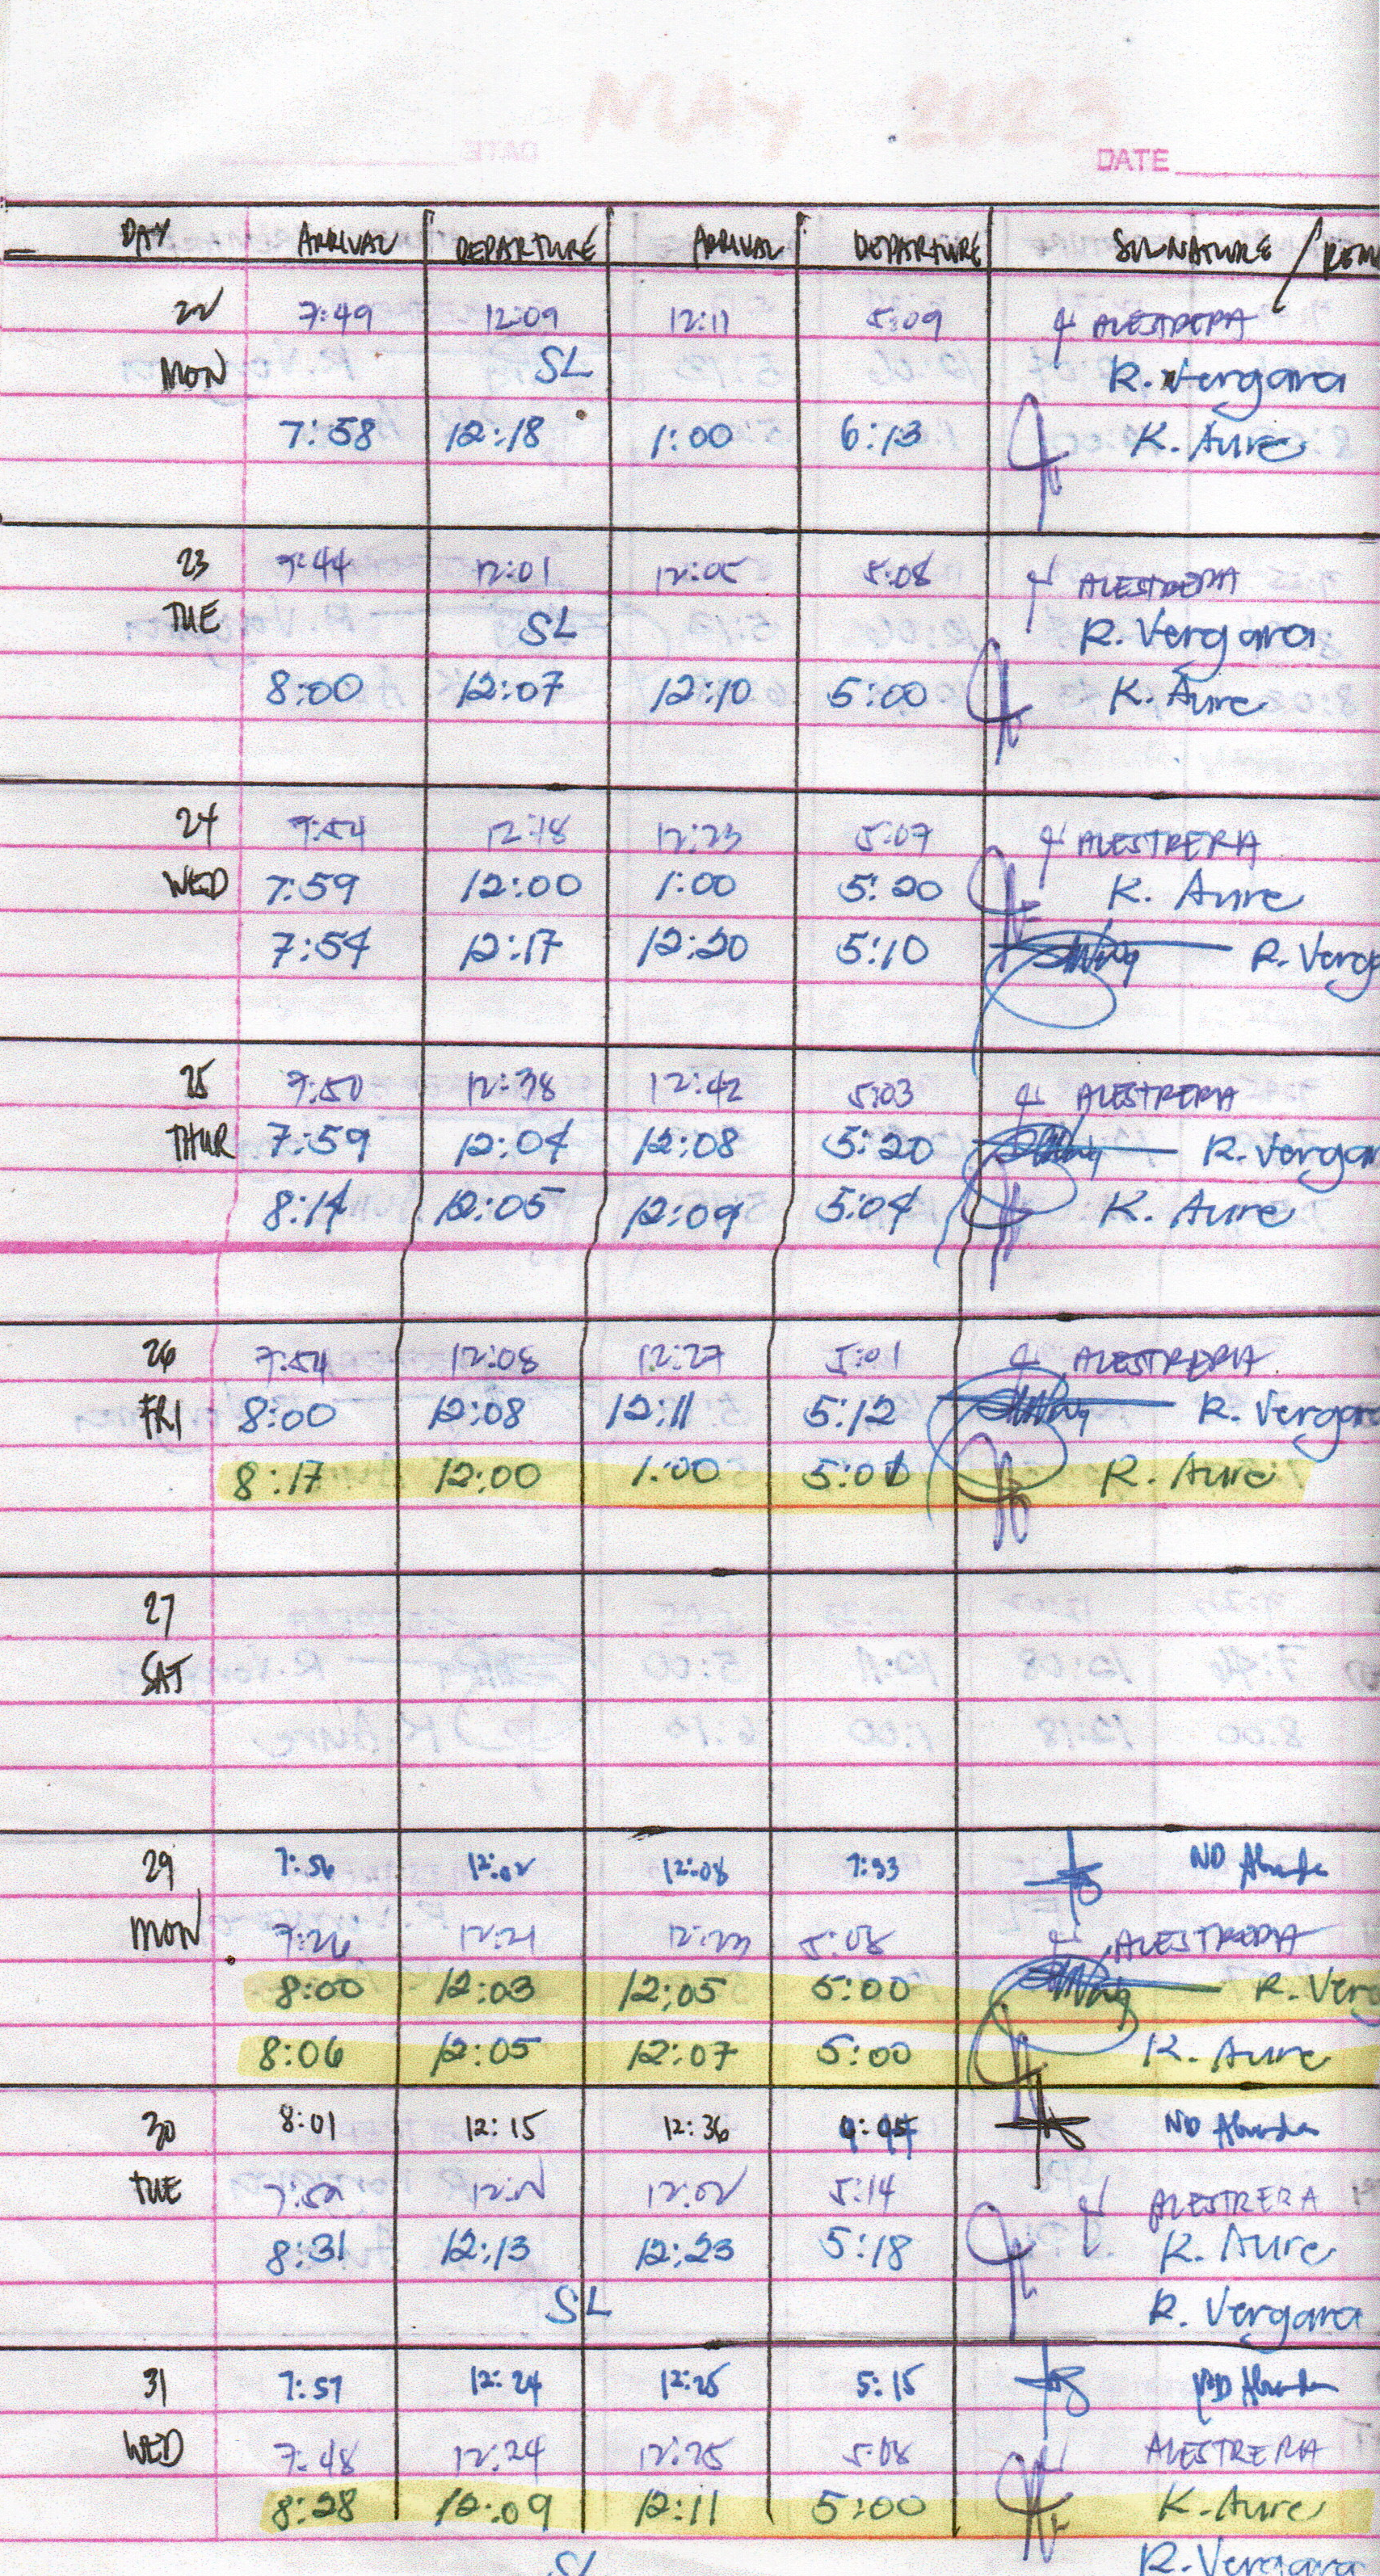 MAY 2023
DATE
DAY ARRIVAL DEPARTURE ARRIVAL DEPARTURE SIGNATURE / REM
22 7:49 12:09 12:11 5:09 ALESTRERA
MON SL R. Vergara
7:58 12:18 1:00 6:13 K. Aure
23 7:44 12:01 12:05 5:08 ALESTRERIA
TUE SL R. Vergara
8:00 12:07 12:10 5:00 K. Aure
24 7:54 12:18 12:23 5:07 ALESTRERIA
WED 7:59 12:00 1:00 5:20 K. Aure
7:54 12:17 12:20 5:10 R. Verg
25 7:50 12:38 12:42 5:03 ALESTRERIA
THUR 7:59 12:04 12:08 5:20 R. Vergar
8:14 12:05 12:09 5:04 K. Aure
26 7:54 12:08 12:27 5:01 ALESTRERIA
FRI 8:00 12:08 12:11 5:12 R. Vergara
8:17 12:00 1:00 5:01 K. Aure
27
SAT
29 7:56 12:02 12:08 7:33 ND
MON 7:26 12:21 12:23 5:08 ALESTRERIA
8:00 12:03 12:05 5:00 R. Verg
8:06 12:05 12:07 5:00 K. Aure
30 8:01 12:15 12:36 ND
TUE 12:02 5:14 ALESTRERA
8:31 12:13 12:23 5:18 K. Aure
SL R. Vergara
31 7:57 12:24 12:25 5:15
WED 7:48 12:24 12:25 5:08 ALESTRERIA
8:28 12:09 12:11 5:00 K. Aure
SL R. Vergara